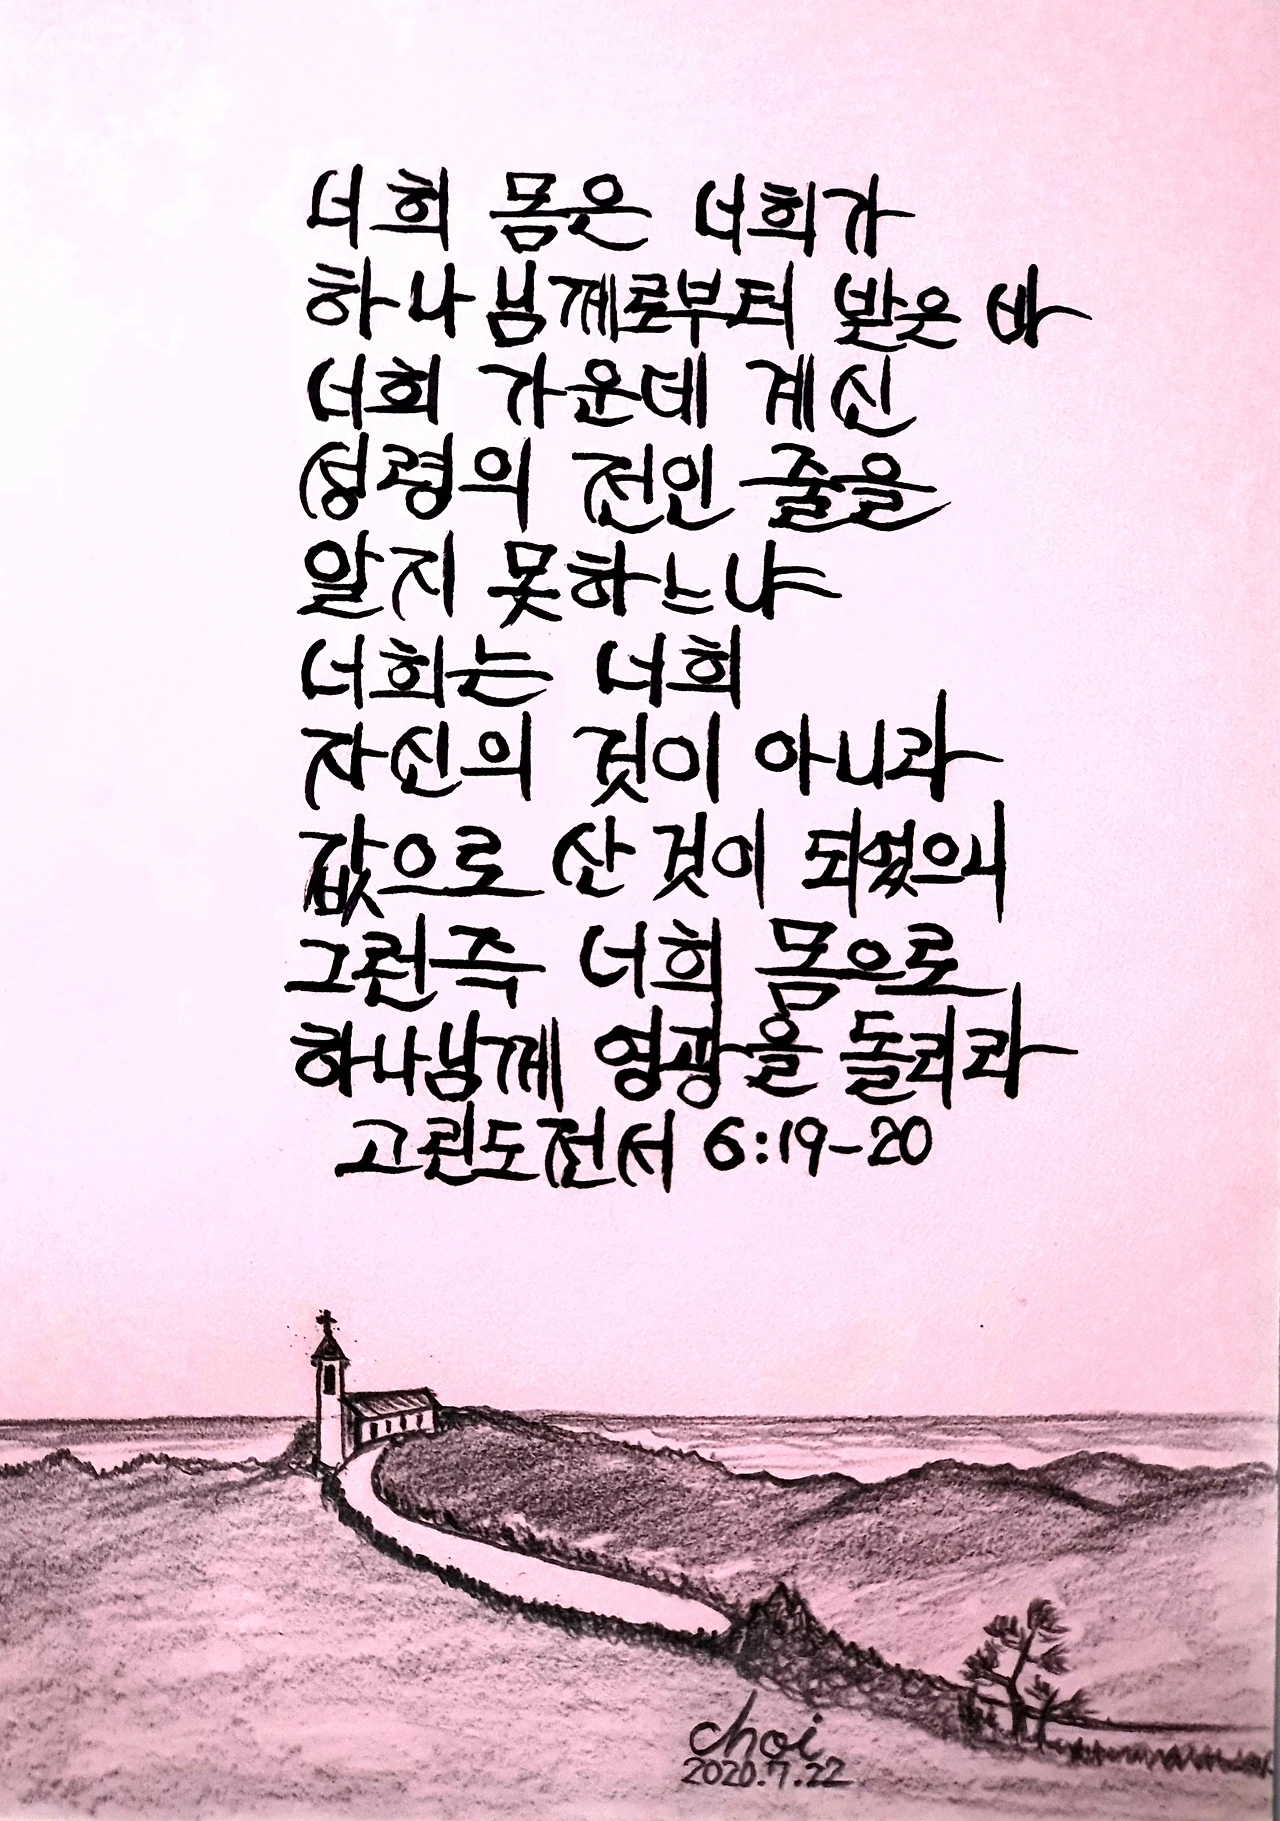 너희 몸은 너희가
하나님께로부터 받은 바
너희 가운데 계신
성령의 전인 줄을
알지 못하느냐
너희는 너희
자신의 것이 아니라
값으로 산 것이 되었으니
그런즉 너희 몸으로
하나님께 영광을 돌리라
고린도전서 6:19-20
choi
2020.7.22